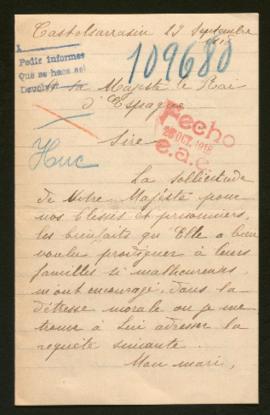 Castelsarrasin 23 Septembre
1918
Pedir informes
Que se haga así
Devolver
109680
A Sa Majesté le Roi
d'Espagne
Sire
Fecho
26 OCT. 1918
e.a.c.
Huc
La sollicitude
de Votre Majesté pour
nos blessés et prisonniers,
les bienfaits qu'Elle a bien
voulu prodiguer à leurs
familles si malheureuses,
m'ont encouragé, dans la
détresse morale où je me
trouve à Lui adresser la
requête suivante.
Mon mari,